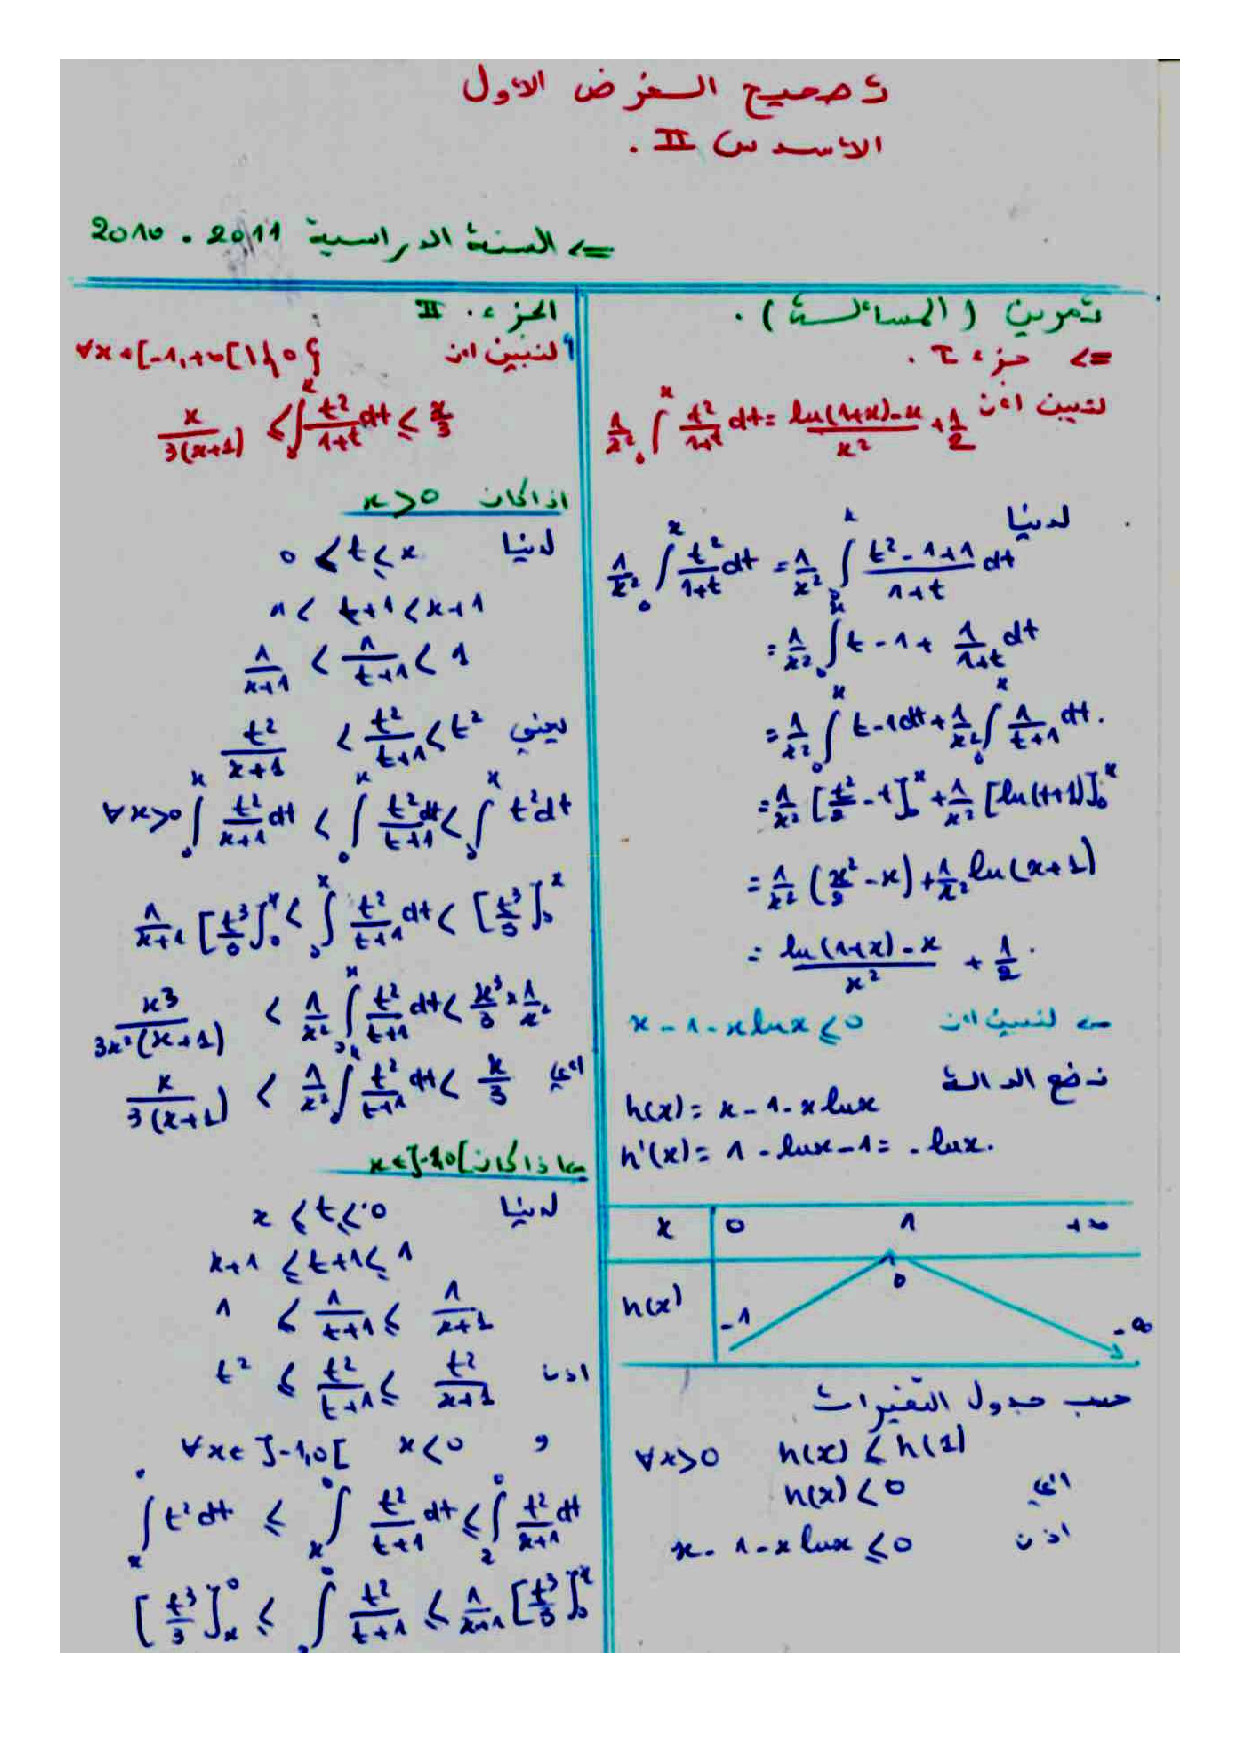 تصحيح الفرض الأول
الأسدس II .
=> السنة الدراسية 2011 - 2010
تمرين (المسألة) .
=> جزء I .
لنبين أن 1/x² ∫₀ˣ t²/(1+t) dt = (ln(1+x)-x)/x² + 1/2
لدينا
1/x² ∫₀ˣ t²/(1+t) dt = 1/x² ∫₀ˣ (t²-1+1)/(1+t) dt
= 1/x² ∫₀ˣ t-1+ 1/(1+t) dt
= 1/x² ∫₀ˣ t-1 dt + 1/x² ∫₀ˣ 1/(t+1) dt.
= 1/x² [t²/2 - t]₀ˣ + 1/x² [ln(t+1)]₀ˣ
= 1/x² (x²/2 - x) + 1/x² ln(x+1)
= (ln(1+x)-x)/x² + 1/2 .
لنبين أن x-1-x ln x ≤ 0
نضع الدالة
h(x) = x-1-x ln x
h'(x) = 1 - ln x - 1 = - ln x.
x 0 1 +∞
h(x) -1 0 -∞
حسب جدول التغيرات
∀x>0 h(x) ≤ h(1)
أي h(x) < 0
اذن x-1-x ln x ≤ 0
الجزء. II
لنبين أن ∀x∈[-1,+∞[\{0}
x/(3(x+1)) ≤ ∫₀ˣ t²/(1+t) dt ≤ x/3
اذا كان x>0
لدينا 0 ≤ t ≤ x
1 < t+1 < x+1
1/(x+1) < 1/(t+1) < 1
يعني t²/(x+1) < t²/(t+1) < t²
∀x>0 ∫₀ˣ t²/(x+1) dt < ∫₀ˣ t²/(t+1) dt < ∫₀ˣ t² dt
1/(x+1) [t³/3]₀ˣ < ∫₀ˣ t²/(t+1) dt < [t³/3]₀ˣ
x³/(3x²(x+1)) < 1/x² ∫₀ˣ t²/(t+1) dt < x³/3 × 1/x²
أي x/(3(x+1)) < 1/x² ∫₀ˣ t²/(t+1) dt < x/3
اذا كان x∈]-1,0[
لدينا x ≤ t ≤ 0
x+1 ≤ t+1 ≤ 1
1 ≤ 1/(t+1) ≤ 1/(x+1)
اذن t² ≤ t²/(t+1) ≤ t²/(x+1)
و x<0 ∀x∈]-1,0[
∫ₓ⁰ t² dt ≤ ∫ₓ⁰ t²/(t+1) dt ≤ ∫ₓ⁰ t²/(x+1) dt
[t³/3]ₓ⁰ ≤ ∫⁰ t²/(t+1) ≤ 1/(x+1) [t³/3]₀ˣ